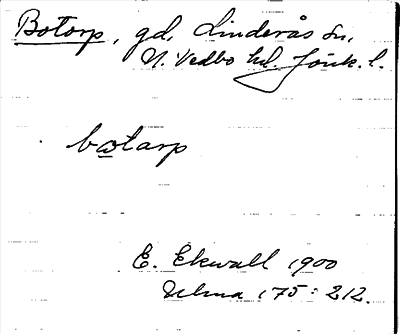 Botorp, gd, Linderås sn,
N. Vedbo hd. Jönk. l.
botarp
E. Ekwall 1900
Ulma 175:212.